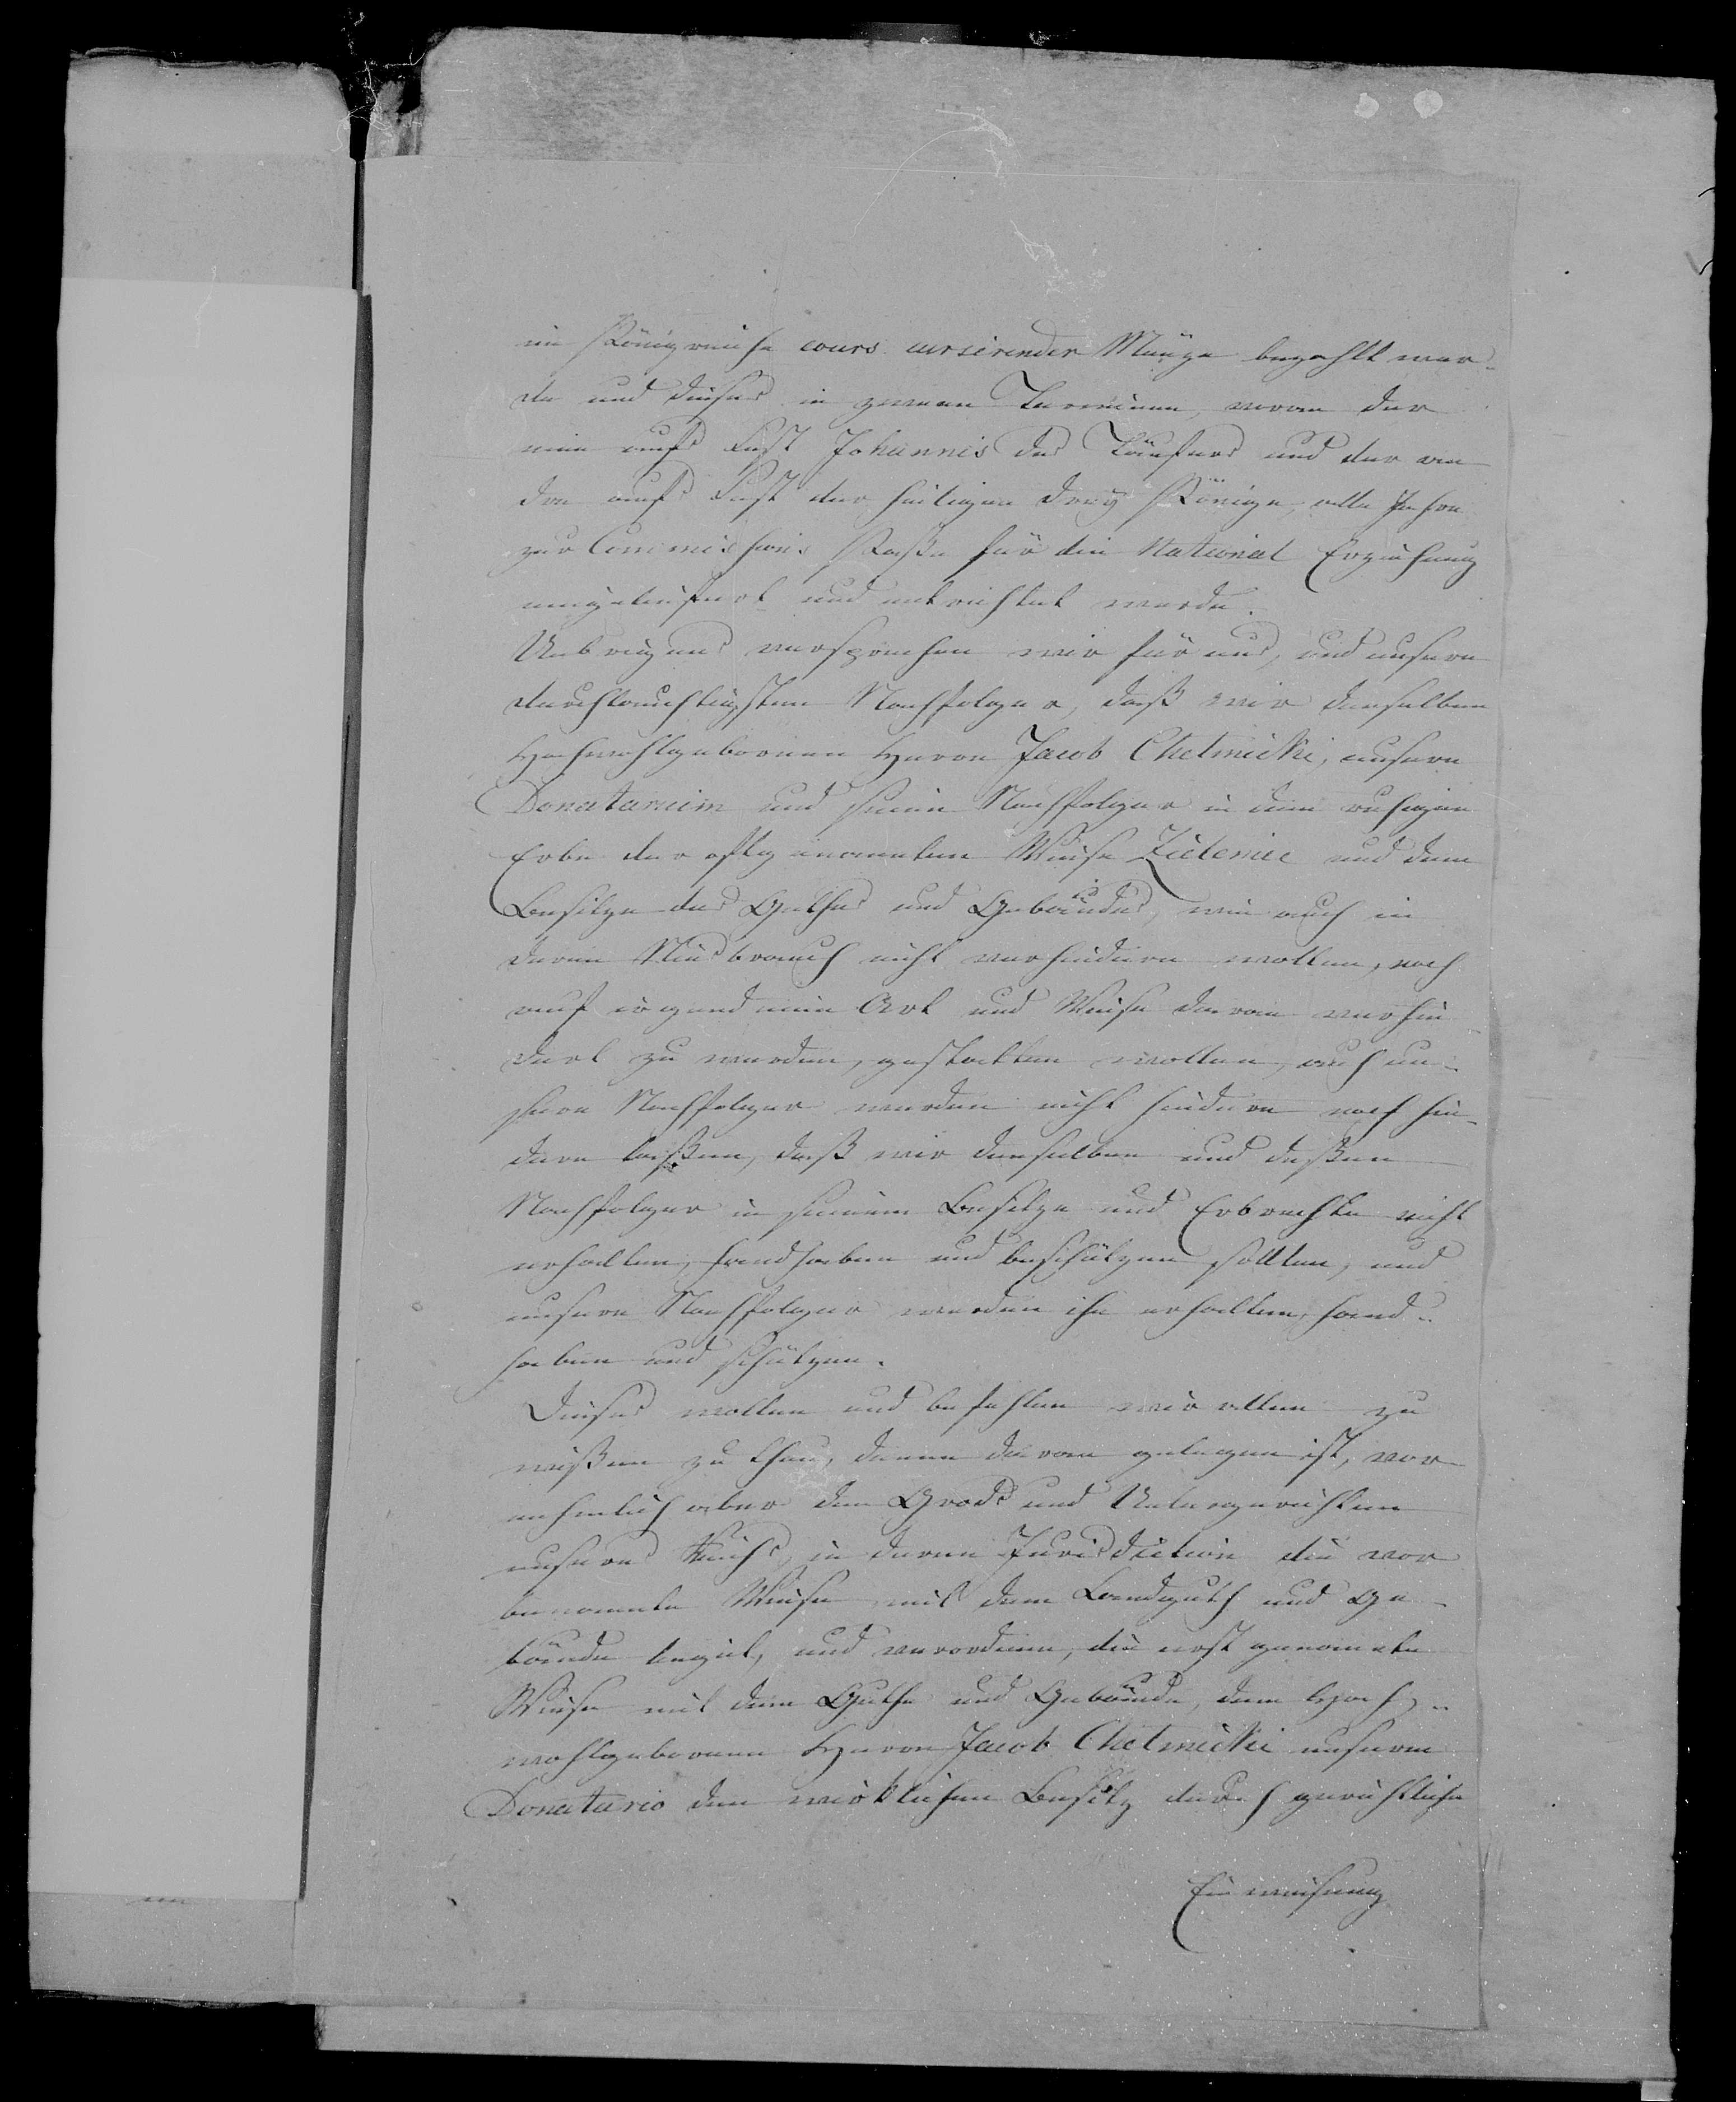 im Königreiche cours cursirender Münze bezahlt wer-
de und dieses in zween Terminen, wovon der
eine aufs Fest Johannis des Täufers und der an
dre aufs Fest der heiligen drey Könige, alle Jahre
zur Commissions Kaße für die National Erziehung
eingeliefert und entrichtet werde.
Uebrigens versprechen wir für uns, und unsere
durchlauchtigsten Nachfolger, daß wir denselben
Hochwohlgebornen Herrn Jacob Chelmicki, unsern
Donatarium und seine Nachfolger in dem ruhigen
Erbe der oftgenannten Wiese Zieleniec und dem
Besitze des Guthes und Gebäudes, wie auch in
deren Niesbrauch nicht verhindern wollen, noch
auf irgend eine Art und Weise daran verhin
dert zu werden, gestatten wollen, auch un-
sere Nachfolger werden nicht hindern noch hin-
dern laßen, daß wir denselben und deßen
Nachfolger in seinem Besitze und Erbrechte nicht
erhalten, handhaben und beschützen sollten, und
unsere Nachfolger werden ihn erhalten, hand-
haben und schützen.
Dieses wollen und befehlen wir allen zu
wißen zu thun, denen daran gelegen ist, vor
nehmlich aber den Grods und Untergerichten
unseres Reichs, in deren Jurisdiction die vor
benannte Wiese mit dem Landguth und Ge-
bäude liegt, und verordnen, die erst genannte
Wiese mit dem Guthe und Gebäude, dem Hoch-
wohlgebornen Herrn Jacob Chelmicki unserm
Donatario den wirklichen Besitz durch gerichtliche
Einweisung